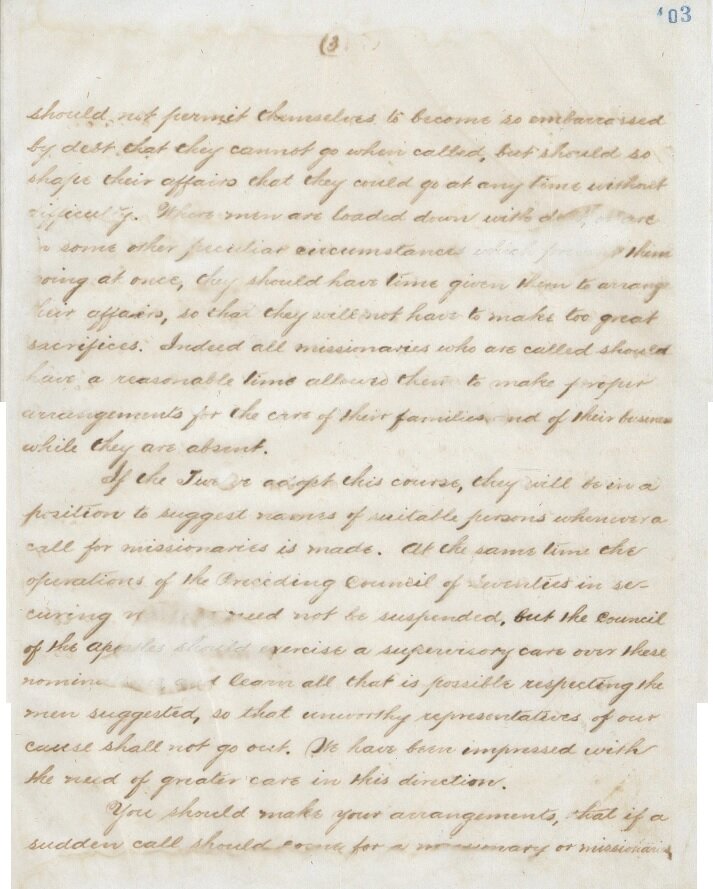 103
(3
should not permit themselves to become so embarrassed
by debt that they cannot go when called, but should so
shape their affairs that they could go at any time without
difficulty. Where men are loaded down with are
some other peculiar circumstances which prevent them
going at once, they should have time given them to arrange
their affairs, so that they will not have to make too great
sacrifices. Indeed all missionaries who are called should
have a reasonable time allowed them to make proper
arrangements for the care of their families and of their business
while they are absent.
If the Twelve adopt this course, they will be in a
position to suggest names of suitable persons whenever a
call for missionaries is made. At the same time the
operations of the Preceding Council of Seventies in se-
curing need not be suspended, but the Council
of the Apostles should exercise a supervisory care over these
and learn all that is possible respecting the
men suggested, so that unworthy representatives of our
cause shall not go out. We have been impressed with
the need of greater care in this direction.
You should make your arrangements, that if a
sudden call should come for a missionary or missionaries